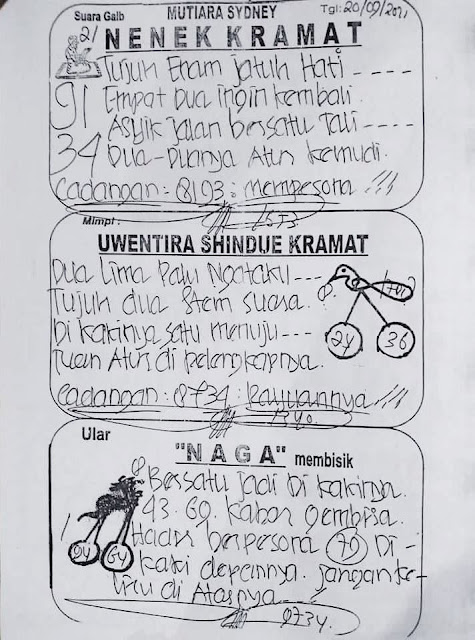 Suara Gaib MUTIARA SYDNEY Tgl: 20/09/2021
NENEK KRAMAT
21
Tujuh Enam jatuh Hati ----
91 Empat Dua ingin kembali.
Asyik jalan bersatu Tali ----
34 Dua-Duanya Atur kemudi.
Cadangan: 8193: mempesona !!!
Mimpi:
UWENTIRA SHINDUE KRAMAT
Dua Lima Palu Ngataku ---
Tujuh dua Stem suara.
Di kakinya satu menuju ---
24 36
Tuan Atur di pelengkapnya.
Cadangan: 8734: Rayuannya !!!
Ular
"NAGA" membisik
Bersatu jadi Di kakinya.
43. 69. kabar gembira.
Hadir berpesona 79 Di-
04 64
kaki depannya. jangan ke-
liru di Atasnya
8734.